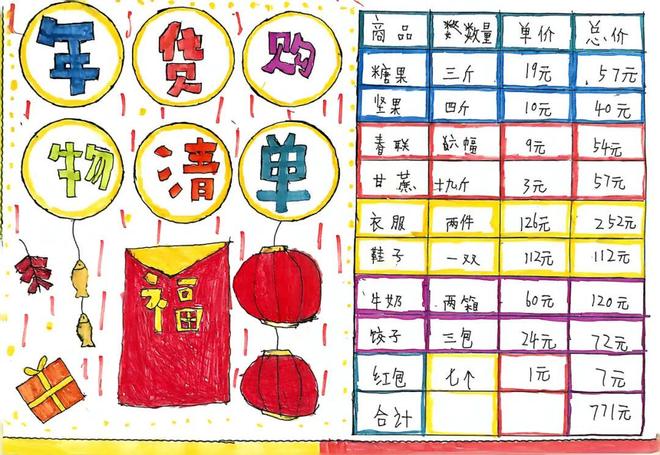 年 货 购
物 清 单
福
商品 数量 单价 总价
糖果 三斤 19元 57元
坚果 四斤 10元 40元
春联 六幅 9元 54元
甘蔗 十九斤 3元 57元
衣服 两件 126元 252元
鞋子 一双 112元 112元
牛奶 两箱 60元 120元
饺子 三包 24元 72元
红包 七个 1元 7元
合计 771元